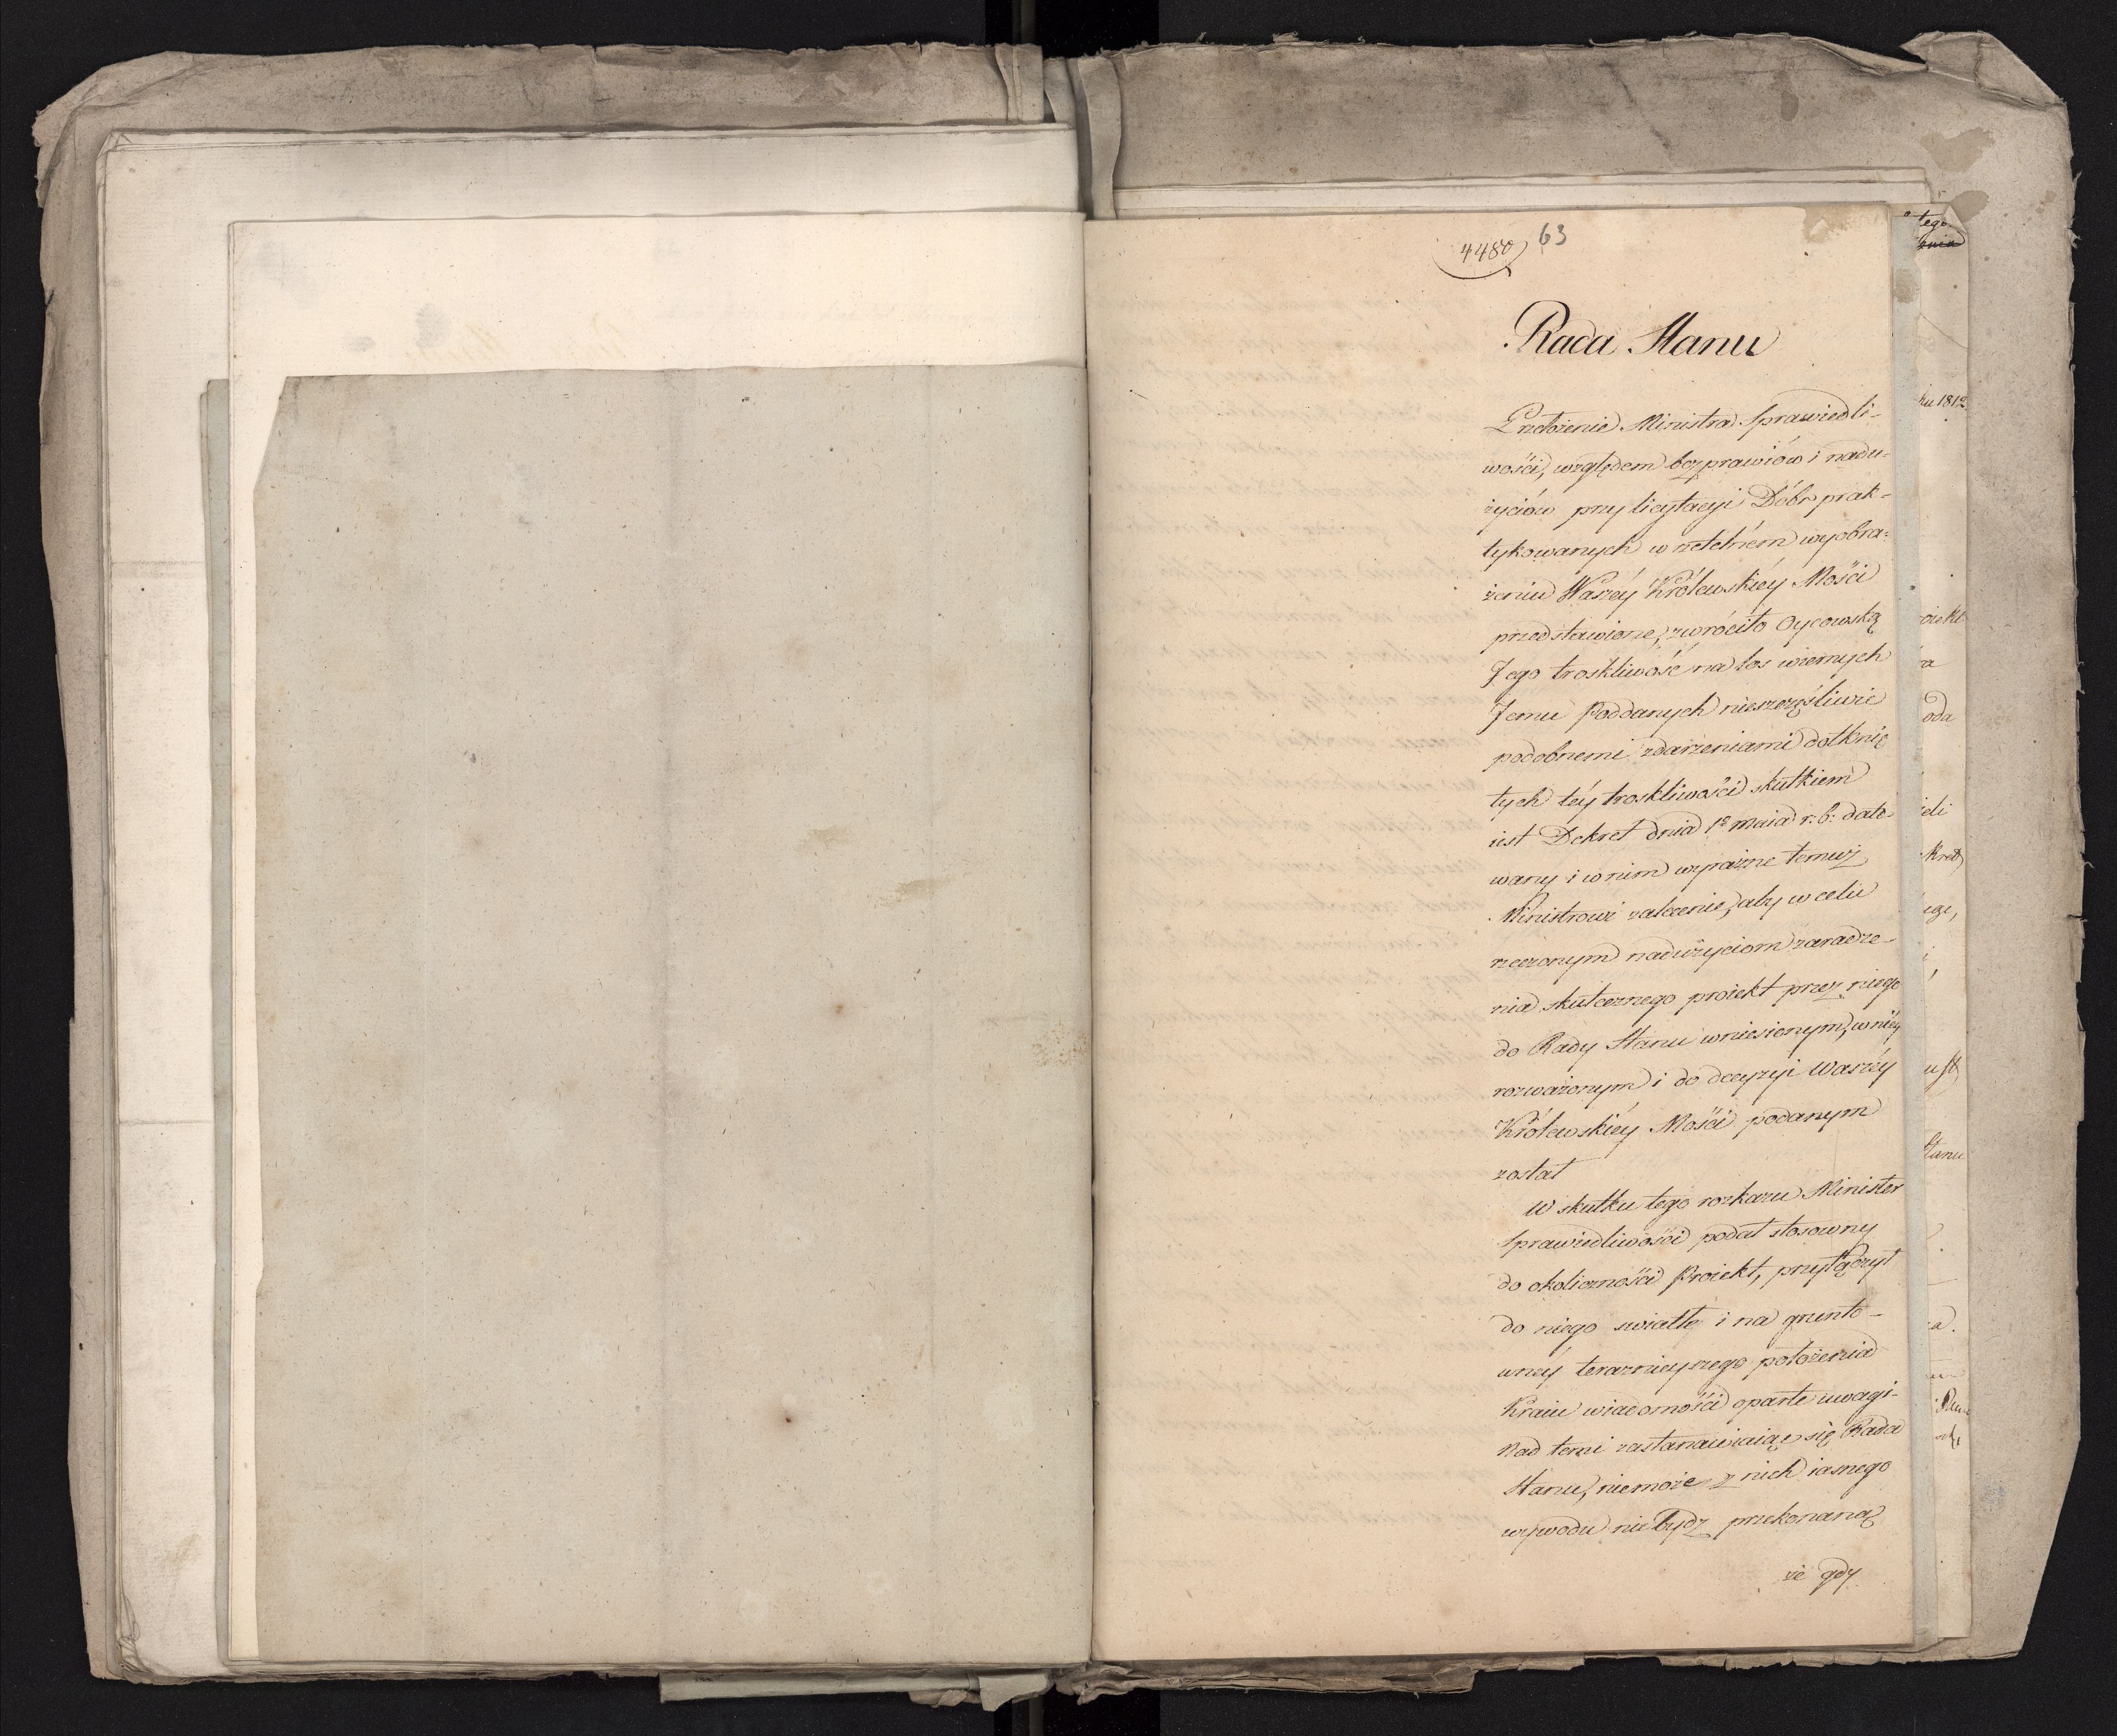 4480 63
Rada Stanu
Przełożenie Ministra Sprawiedli-
wości, względem bezprawiów i nadu-
życiów przy licytacyi Dóbr prak-
tykowanych w rzetelném wyobra-
żeniu Waszéy Królewskiéy Mości
przedstawione, zwróciło Oycowską
Jego troskliwość na los wiernych
Jemu Poddanych nieszczęśliwie
podobnemi zdarzeniami dotknię
tych téy troskliwości skutkiem
iest Dekret dnia 1º maia r: b: dato-
wany i w nim wyraźne temuż
Ministrowi zalecenie, aby w celu
rzeczonym nadużyciom zaradze-
nia skutecznego proiekt przez niego
do Rady Stanu wniesionym, w niéy
rozważonym i do decyzyi Waszéy
Królewskiéy Mości podanym
został
W skutku tego rozkazu Minister
Sprawiedliwości podał stosowny
do okoliczności Proiekt, przyłączył
do niego światłe i na grunto-
wnéy teraznieyszego położenia
Kraiu wiadomości oparte uwagi-
Nad temi zastanawiaiąc się Rada
Stanu, niemoże z nich iasnego
wywodu nie bydź przekonaną
że gdy
tego
ku 1812
oda
Stanu